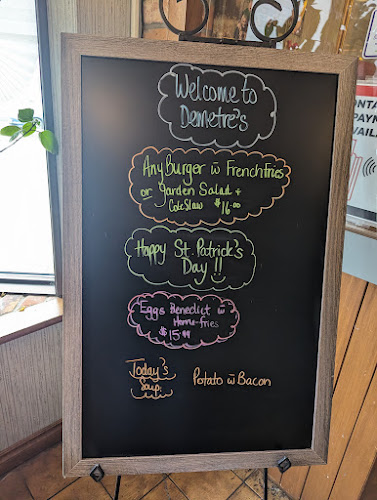 Welcome to
Demetre's
Any Burger w̄ French Fries
or Garden Salad +
Cole Slaw $16.00
Happy St. Patrick's
Day !!
Eggs Benedict w̄
Home-fries
$15.99
Today's
Soup
Potato w̄ Bacon